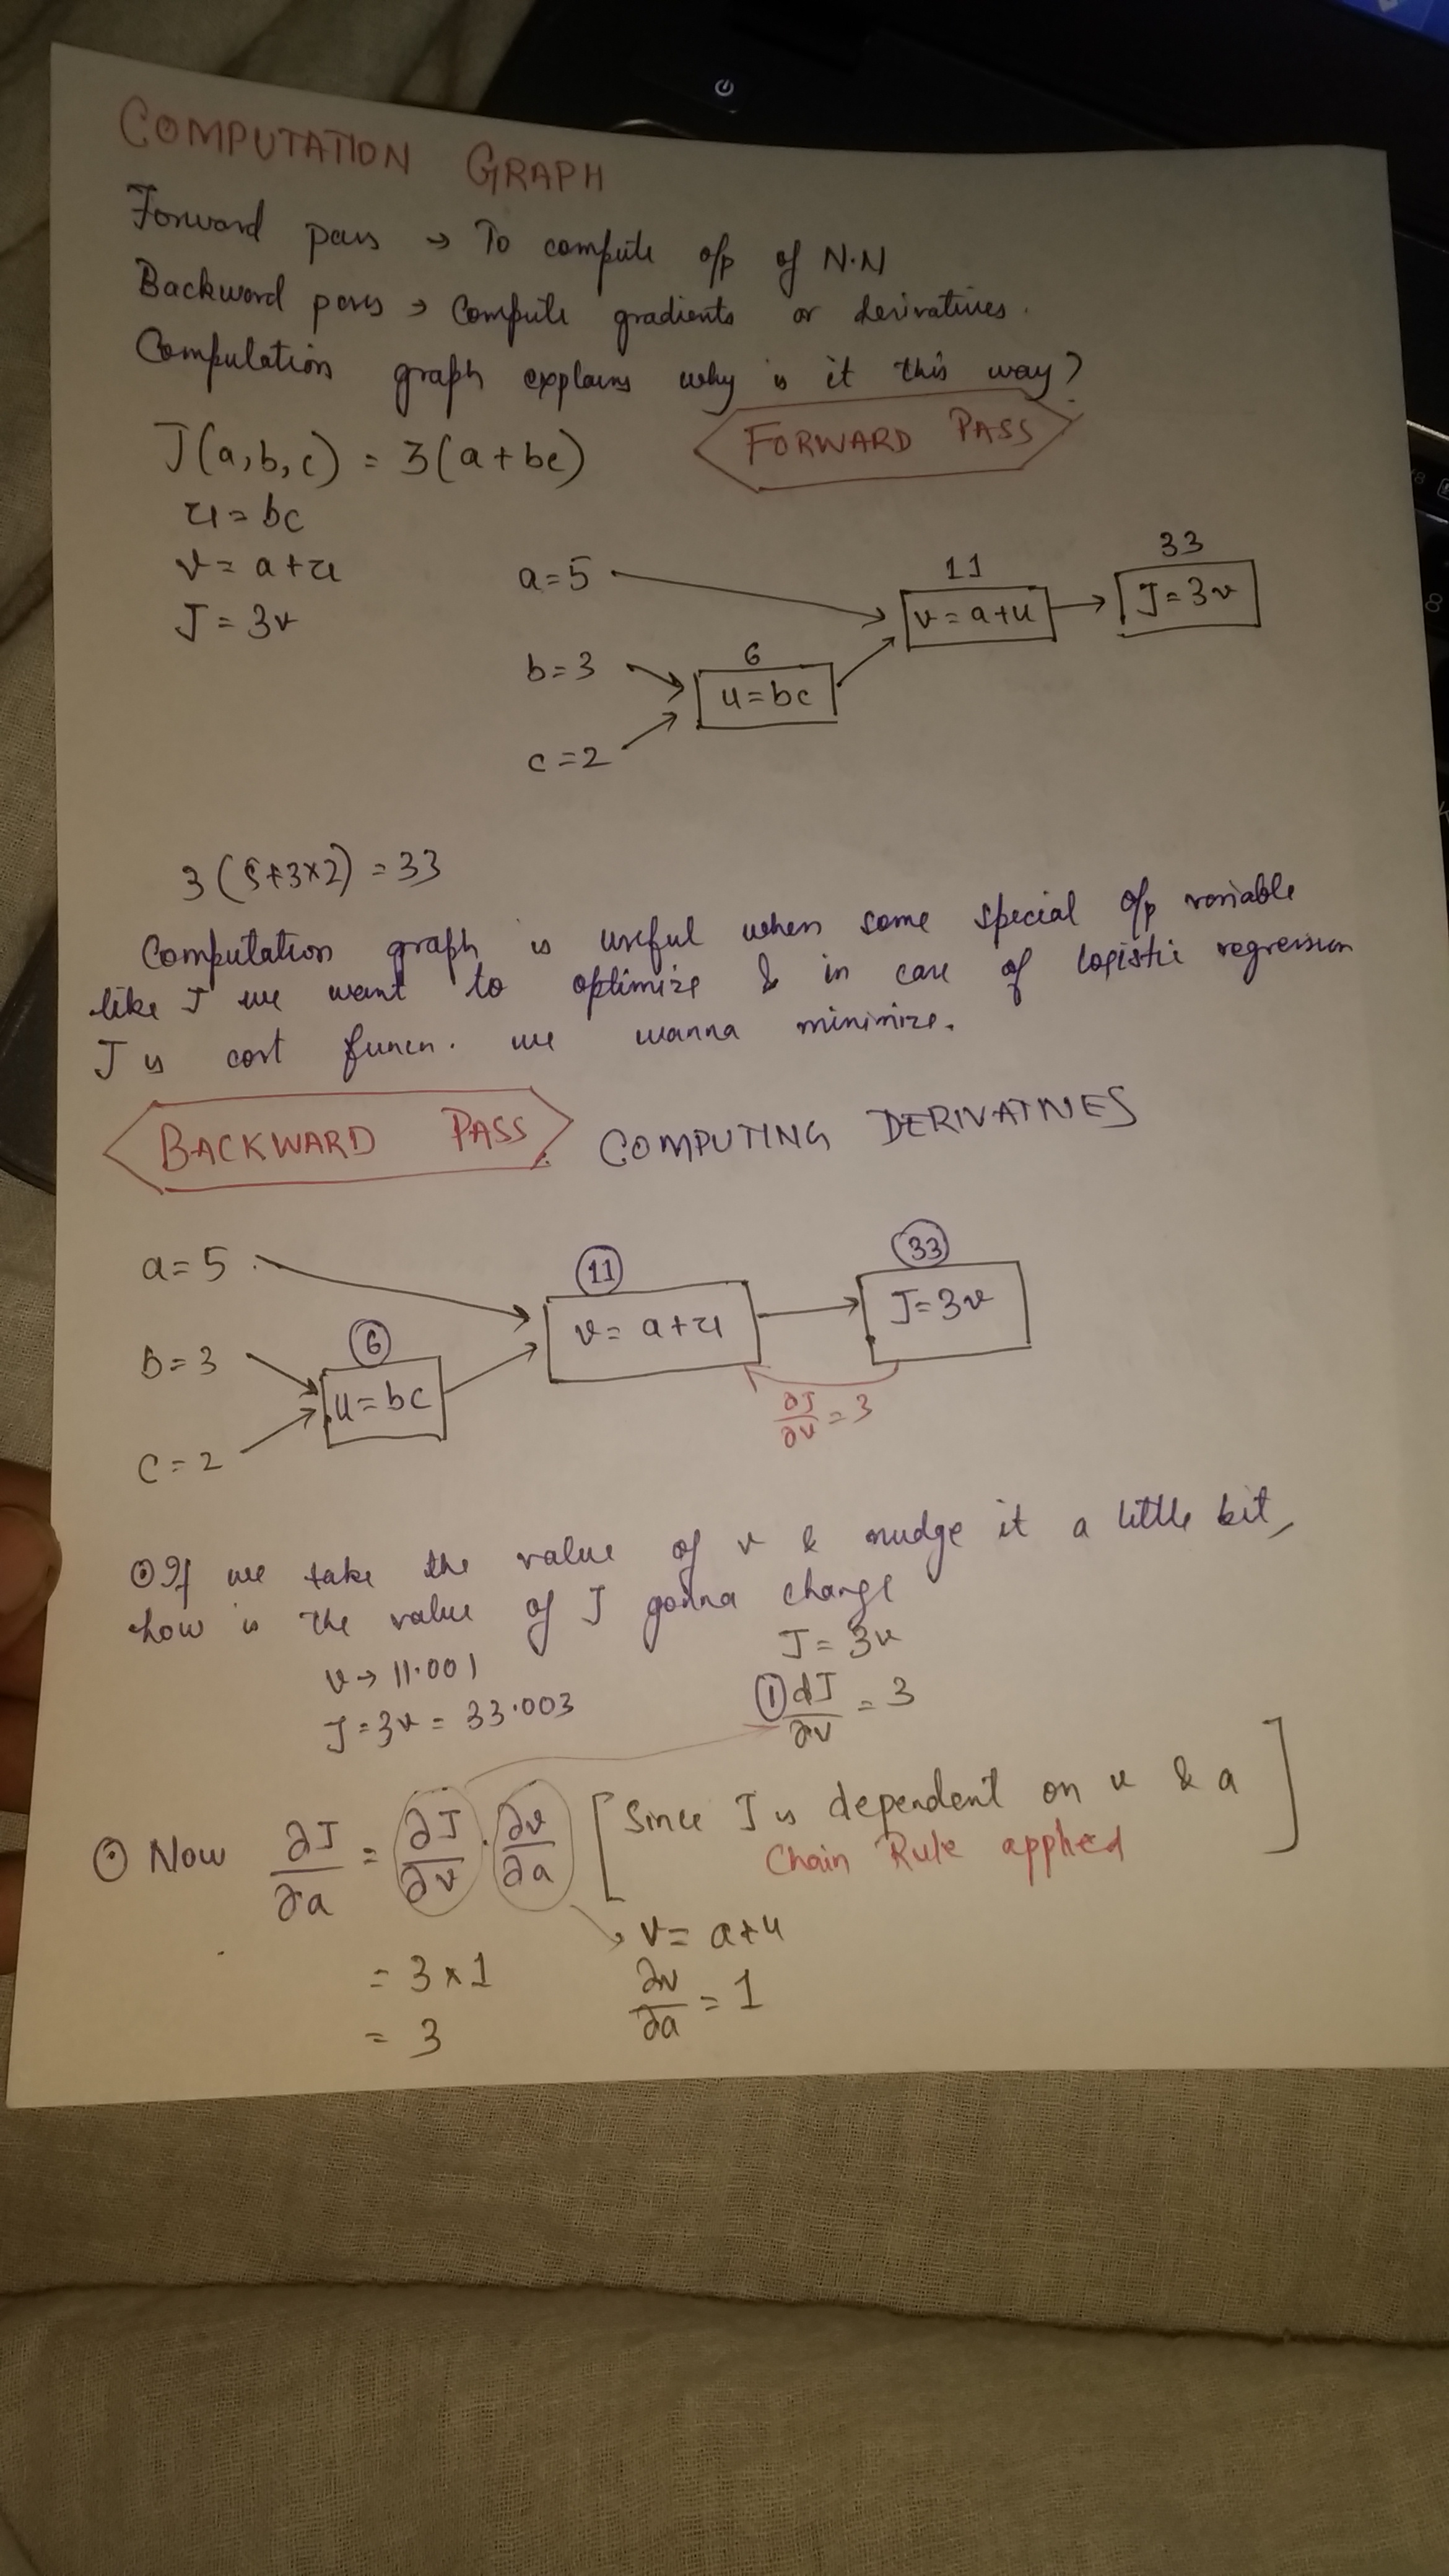 COMPUTATION GRAPH
Forward pass → To compute o/p of N.N
Backward pass → Compute gradients or derivatives.
Computation graph explains why is it this way?
J(a,b,c) = 3(a+bc)
FORWARD PASS
u = bc
v = a+u
J = 3v
a=5
11
v = a+u
33
J = 3v
b=3
6
u=bc
c=2
3(5+3×2) = 33
Computation graph is useful when some special o/p variable
like J we want to optimize & in case of logistic regression
J is cost funcn. we wanna minimize.
BACKWARD PASS
COMPUTING DERIVATIVES
a=5
11
v = a+u
33
J=3v
b=3
6
u=bc
c=2
∂J/∂v = 3
⊙ If we take the value of v & nudge it a little bit,
how is the value of J gonna change
v → 11.001
J = 3v
J = 3v = 33.003
① dJ/∂v = 3
⊙ Now ∂J/∂a = ∂J/∂v · ∂v/∂a [Since J is dependent on v & a
Chain Rule applied]
= 3×1
v = a+u
= 3
∂v/∂a = 1